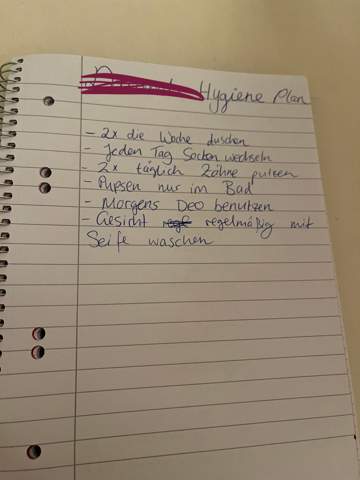 Hygiene Plan
- 2x die Woche duschen
- Jeden Tag Socken wechseln
- 2x täglich Zähne putzen
- Pupsen nur im Bad
- Morgens Deo benutzen
- Gesicht regelmäßig mit
Seife waschen